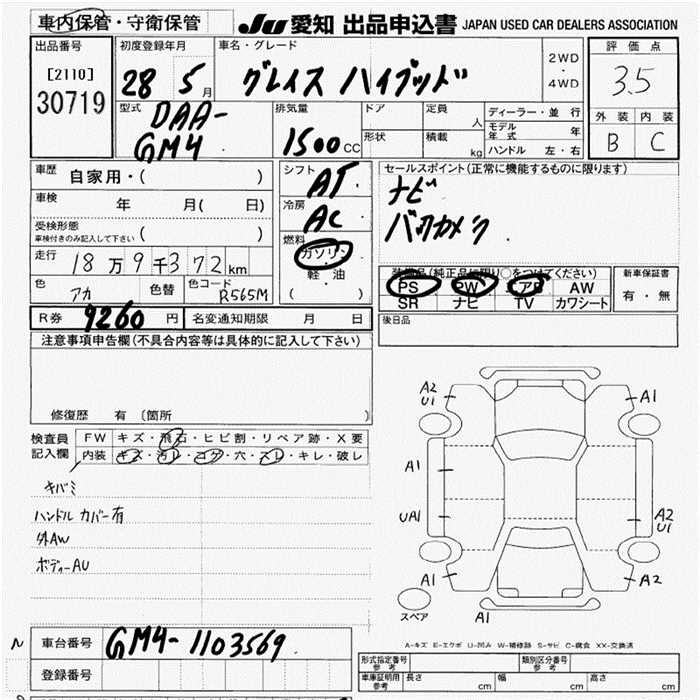 車内保管・守衛保管
JU 愛知 出品申込書 JAPAN USED CAR DEALERS ASSOCIATION
出品番号
[2110]
30719
初度登録年月
28 5月
車名・グレード
グレイス ハイブッド
2WD
・
4WD
評価点
3.5
外装 内装
B C
型式
DAA-
GM4
排気量
1500cc
ドア
形状
定員 人
積載 kg
ディーラー・並行
モデル年式 年
ハンドル 左・右
車歴
自家用・( )
車検 年 月( 日)
受検形態
車検付きのみ記入して下さい ( )
走行 18万9千372km
色 アカ 色替 色コード R565M
シフト AT
冷房 AC
燃料
ガソリン
・
軽・油
( )
セールスポイント(正常に機能するものに限ります)
ナビ
バックカメラ
装備品(純正品に限り○をつけてください)
PS PW エアB AW
SR ナビ TV カワシート
新車保証書
有・無
R券 9260円 名変通知期限 月 日
後日品
注意事項申告欄(不具合内容等は具体的に記入して下さい)
修復歴 有 (箇所
検査員
記入欄
FW キズ・飛石・ヒビ割・リペア跡・X要
内装 キズ・汚レ・コゲ・穴・スレ・キレ・破レ
キバミ
ハンドルカバー有
外AW
ボディーAU
A2
U1
A1
A1
UA1
A2
U1
A1
A2
スペア
A1
A-キズ E-エクボ U-凹み W-補修跡 S-サビ C-腐食 XX-交換済
N
車台番号 GM4-1103569
登録番号
形式指定番号
参考
類別区分番号
参考
車庫証明用
参考
長さ cm 幅 cm 高さ cm